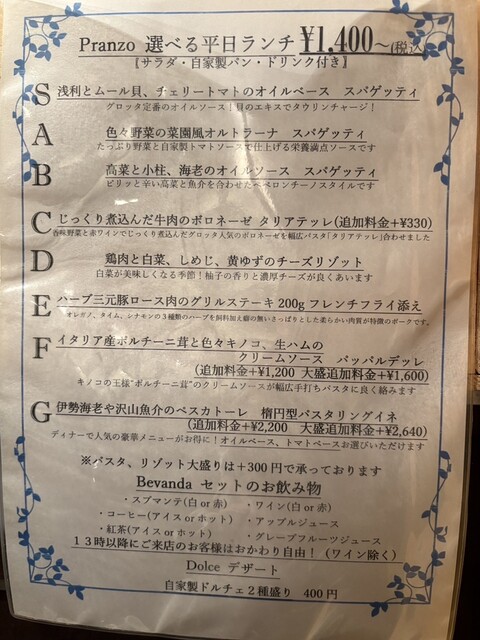 Pranzo 選べる平日ランチ ¥1,400~(税込)
〖サラダ・自家製パン・ドリンク付き〗
S 浅利とムール貝、チェリートマトのオイルベース スパゲッティ
グロッタ定番のオイルソース！貝のエキスでタウリンチャージ！
A 色々野菜の菜園風オルトラーナ スパゲッティ
たっぷり野菜と自家製トマトソースで仕上げる栄養満点ソースです
B 高菜と小柱、海老のオイルソース スパゲッティ
ピリッと辛い高菜と魚介を合わせたペペロンチーノスタイルです
C じっくり煮込んだ牛肉のボロネーゼ タリアテッレ(追加料金+¥330)
香味野菜と赤ワインでじっくり煮込んだグロッタ人気のボロネーゼを幅広パスタ「タリアテッレ」合わせました
D 鶏肉と白菜、しめじ、黄ゆずのチーズリゾット
白菜が美味しくなる季節！柚子の香りと濃厚チーズが良くあいます
E ハーブ三元豚ロース肉のグリルステーキ 200g フレンチフライ添え
オレガノ、タイム、シナモンの３種類のハーブを飼料加え癖の無いさっぱりとした柔らかい肉質が特徴のポークです。
F イタリア産ポルチーニ茸と色々キノコ、生ハムの
クリームソース パッパルデッレ
(追加料金+¥1,200 大盛追加料金+¥1,600)
キノコの王様"ポルチーニ茸"のクリームソースが幅広手打ちパスタに良く絡みます
G 伊勢海老や沢山魚介のペスカトーレ 楕円型パスタリングイネ
(追加料金+¥2,200 大盛追加料金+¥2,640)
ディナーで人気の豪華メニューがお得に！オイルベース、トマトベースお選びいただけます
※パスタ、リゾット大盛りは＋300円で承っております
Bevanda セットのお飲み物
・スプマンテ(白 or 赤) ・ワイン(白 or 赤)
・コーヒー(アイス or ホット) ・アップルジュース
・紅茶(アイス or ホット) ・グレープフルーツジュース
１３時以降にご来店のお客様はおかわり自由！(ワイン除く)
Dolce デザート
自家製ドルチェ２種盛り 400円